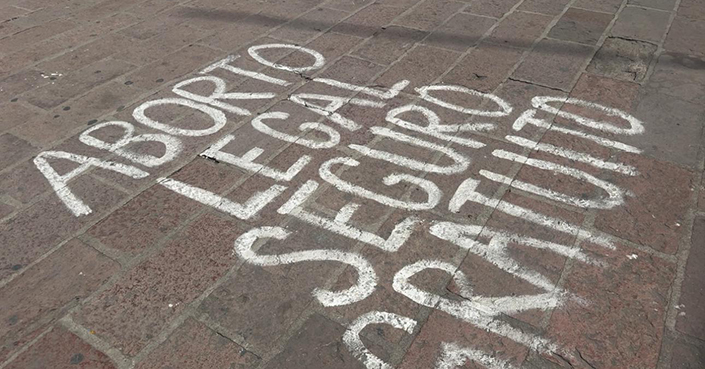 ABORTO
LEGAL
SEGURO
GRATUITO